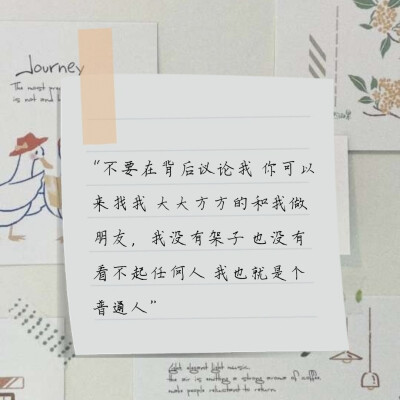 Journey
The most
is not and
"不要在背后议论我 你可以
来找我 大大方方的和我做
朋友，我没有架子 也没有
看不起任何人 我也就是个
普通人"
light elegant light music
the air is emitting a strong aroma of coffee
make people reluctant to return